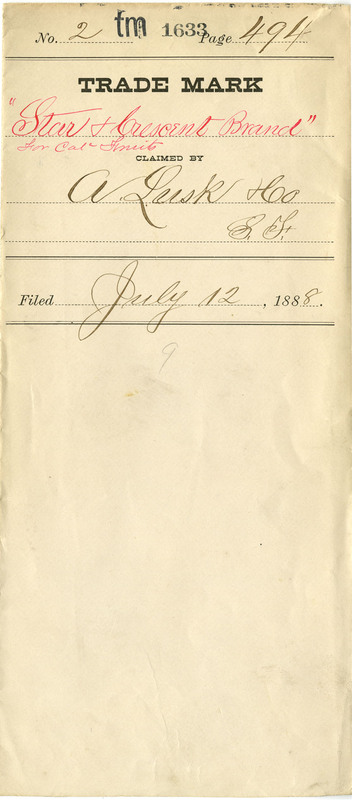 No. 2 tm 1633 Page 494
TRADE MARK
"Star & Crescent Brand"
For Cal. Fruits
CLAIMED BY
A Lusk & Co
S. F.
Filed July 12, 1888.
9